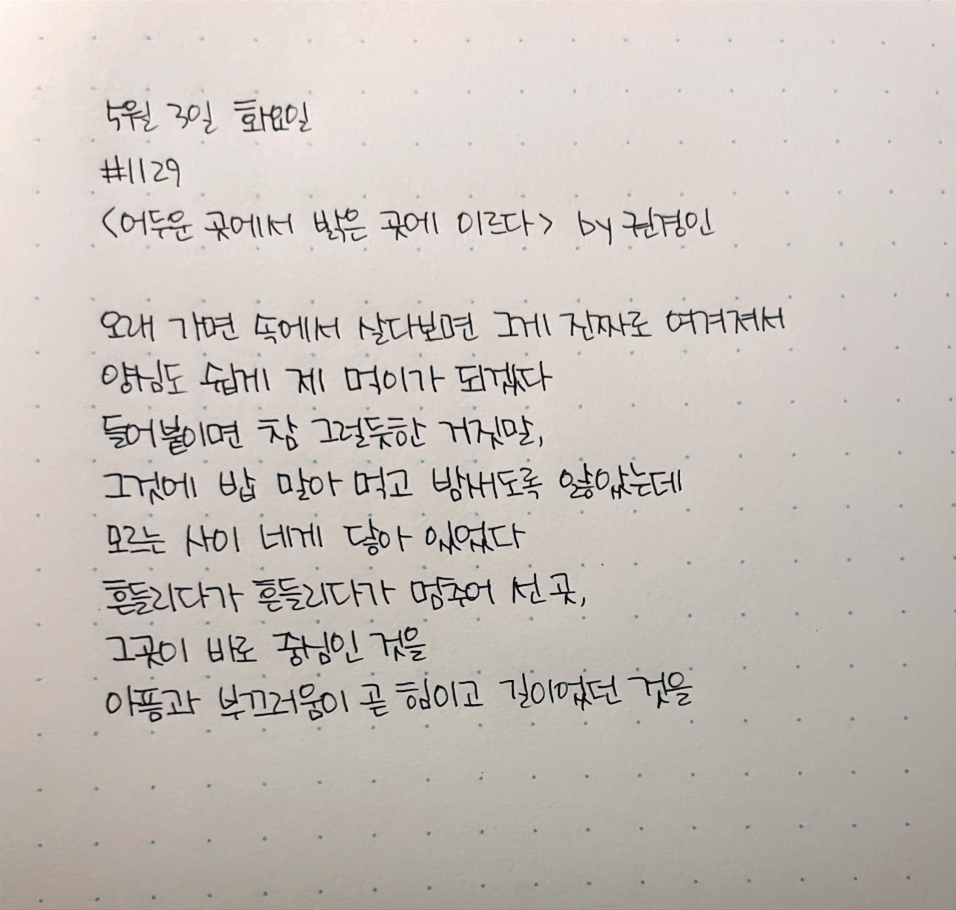 5월 30일 화요일
#1129
<어두운 곳에서 밝은 곳에 이르다> by 권경인
오래 가면 속에서 살다보면 그게 진짜로 여겨져서
양심도 쉽게 제 먹이가 되겠다
들어붙이면 참 그럴듯한 거짓말,
그것에 밥 말아 먹고 밤새도록 앓았는데
모르는 사이 네게 닿아 있었다
흔들리다가 흔들리다가 멈추어 선 곳,
그곳이 바로 중심인 것을
아픔과 부끄러움이 곧 힘이고 길이었던 것을